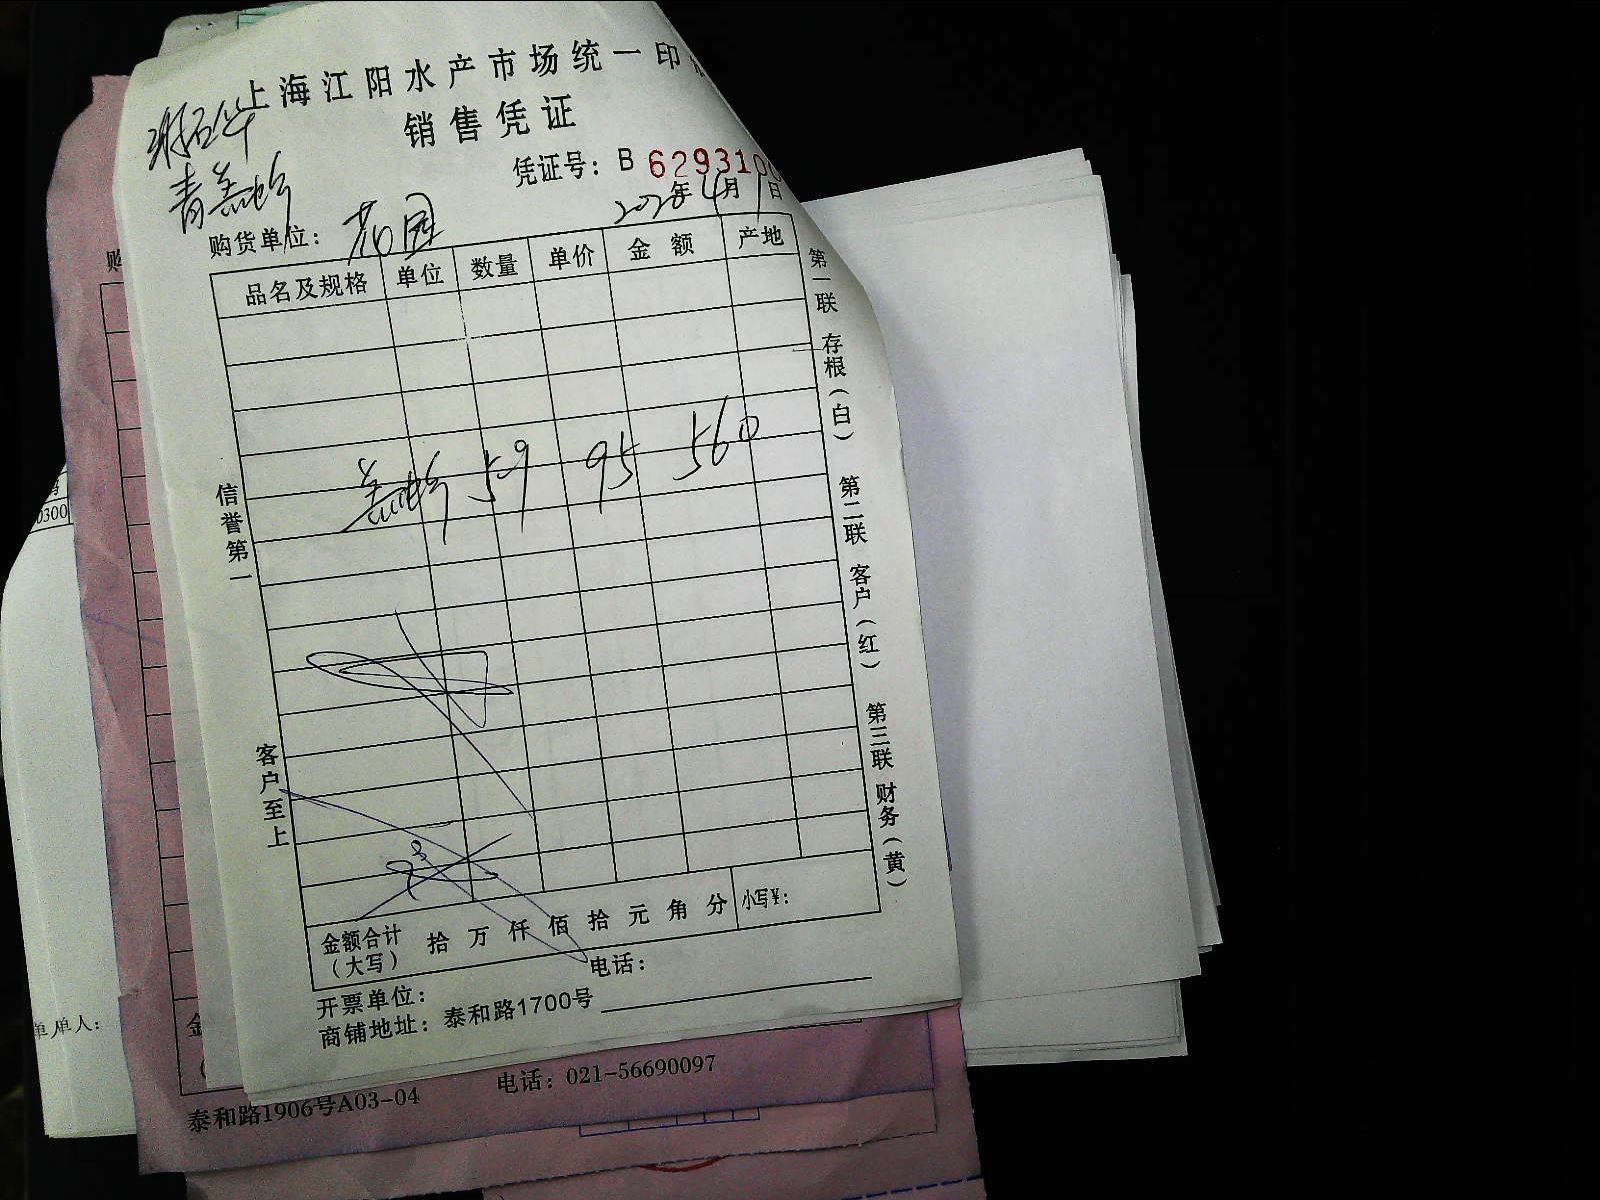 上海江阳水产市场统一印
销售凭证
凭证号：B 629310
年4月1日
购货单位：花园
品名及规格 单位 数量 单价 金额 产地
59 95 560
金额合计（大写） 拾 万 仟 佰 拾 元 角 分 小写¥：
开票单位： 电话：
商铺地址：泰和路1700号
信誉第一
客户至上
第一联 存根（白）
第二联 客户（红）
第三联 财务（黄）
购
0300
单人：
金
泰和路1906号A03-04 电话：021-56690097